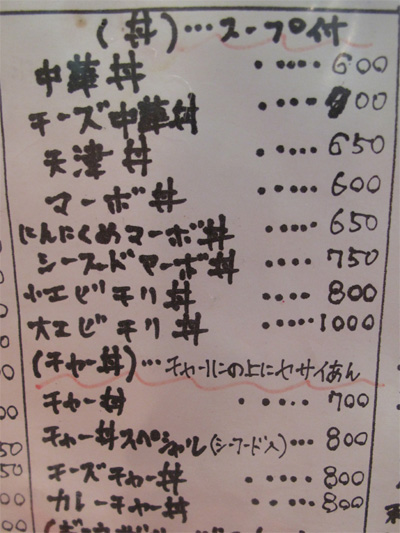 (丼)…スープ付
中華丼 ・・・・・ 600
チーズ中華丼 ・・・・・ 00
天津丼 ・・・・・ 650
マーボ丼 ・・・・・ 600
にんにくめマーボ丼 ・・・・・ 650
シーフードマーボ丼 ・・・・・ 750
小エビチリ丼 ・・・・ 800
大エビチリ丼 ・・・・ 1000
(チャー丼)…チャーハンの上にヤサイあん
チャー丼 ・・・・・ 700
チャー丼スペシャル(シーフード入)… 800
チーズチャー丼 ・・・・・ 800
カレーチャー丼 ・・・・・ 800